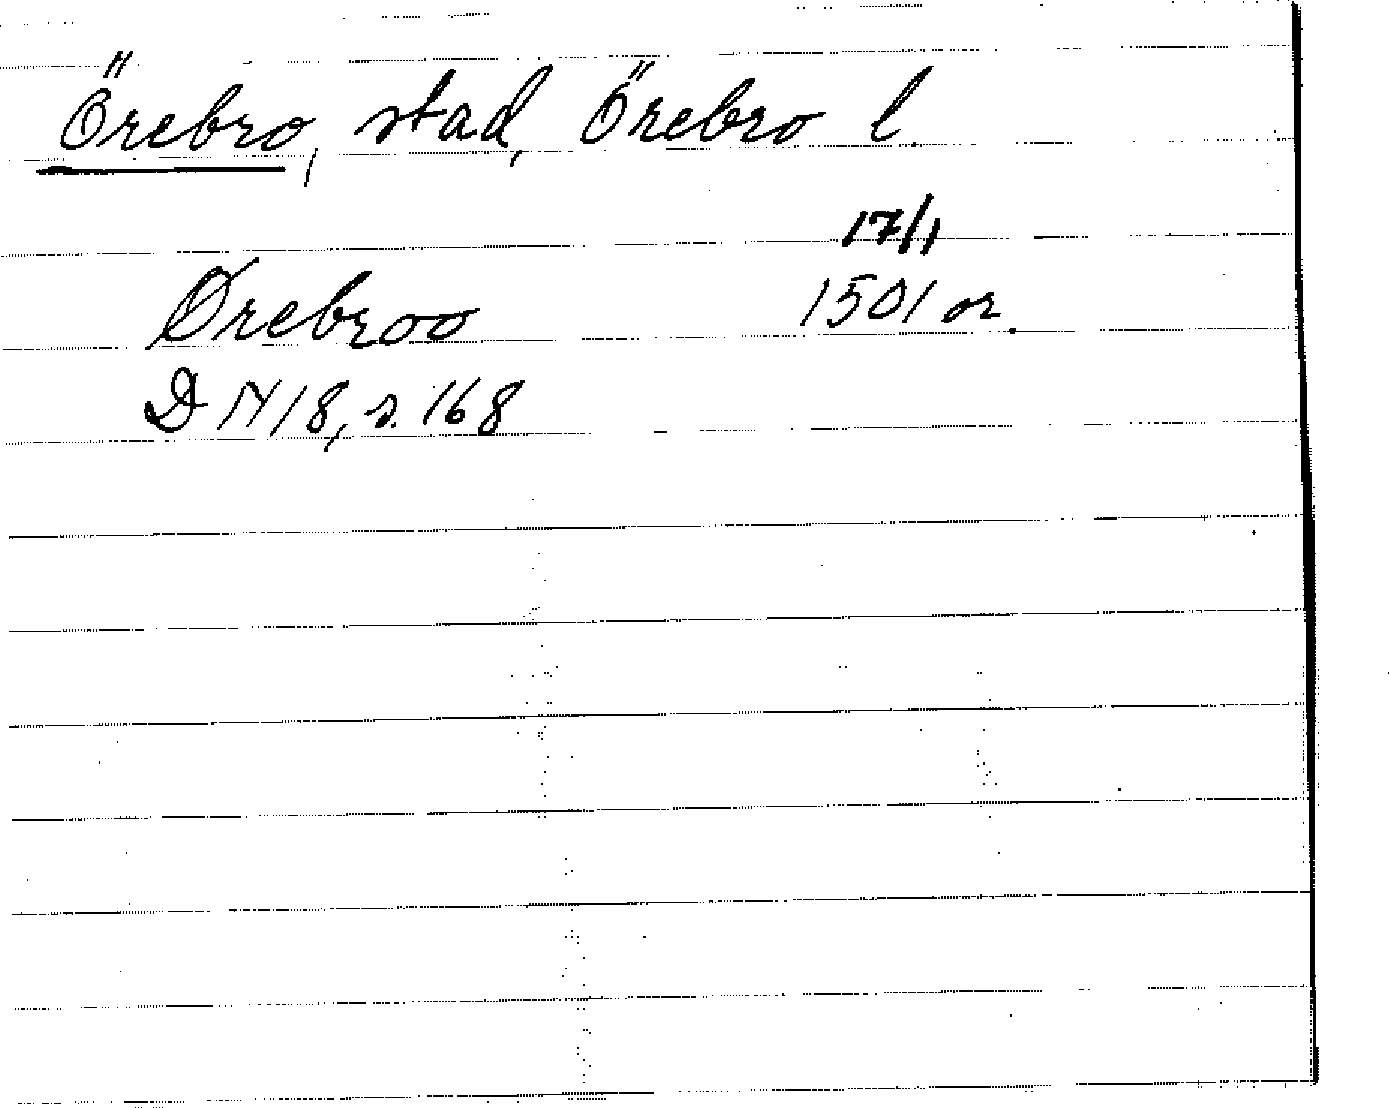 Örebro, stad, Örebro l.
17/1
Ørebroo 1501 or.
DN 18, s. 168